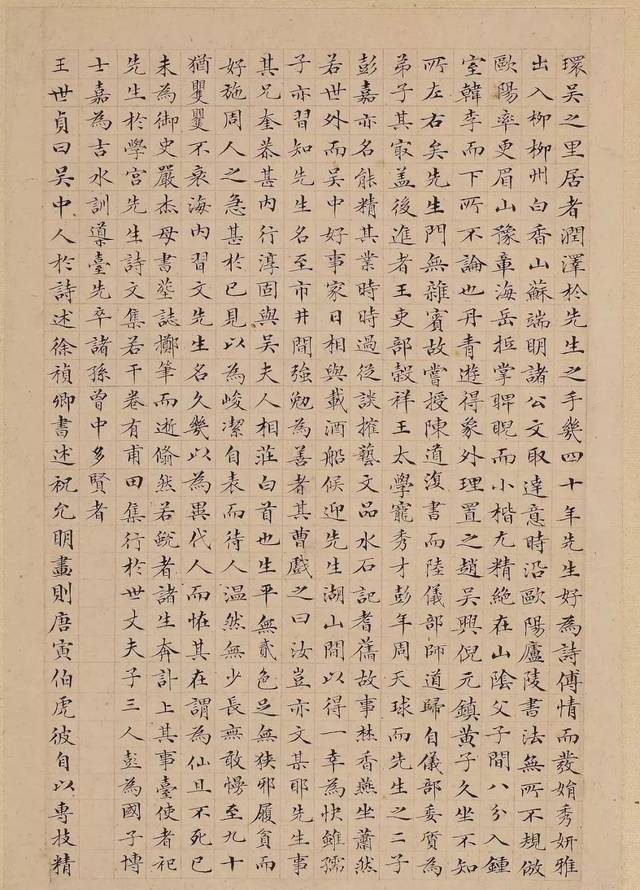 環吴之里居者潤澤於先生之手幾四十年先生好為詩傅情而發娟秀妍雅
出入柳柳州白香山蘇端明諸公文取達意時沿歐陽廬陵書法無所不規倣
歐陽率更眉山豫章海岳抵掌睥睨而小楷尤精絶在山陰父子間八分入鍾
室韓李而下所不論也丹青遊得象外理置之趙吴興倪元鎮黄子久坐不知
所左右矣先生門無雜賓故嘗授陳道復書而陸儀部師道歸自儀部委質為
弟子其最盖後進者王吏部穀祥王太學寵秀才彭年周天球而先生之二子
彭嘉亦名能精其業時時過從談搉藝文品水石記耆舊故事焚香燕坐蕭然
若世外而吴中好事家日相與載酒船候迎先生湖山間以得一幸為快雖孺
子亦習知先生名至市井間強勉為善者其曹戲之曰汝豈亦文某耶先生事
其兄奎恭甚内行淳固與吴夫人相莊白首也生平無貳色足無狹邪履貧而
好施周人之急甚於已見以為峻潔自表而待人温然無少長無敢慢至九十
猶矍矍不衰海内習文先生名久幾以為異代人而怪其在謂為仙且不死已
未為御史嚴杰母書墓誌擲筆而逝翛然若蛻者諸生奔計上其事臺使者祀
先生於學宫先生詩文集若干卷有甫田集行於世丈夫子三人彭為國子博
士嘉為吉水訓導臺先卒諸孫曾中多賢者
王世貞曰吴中人於詩述徐禎卿書述祝允明畫則唐寅伯虎彼自以專技精